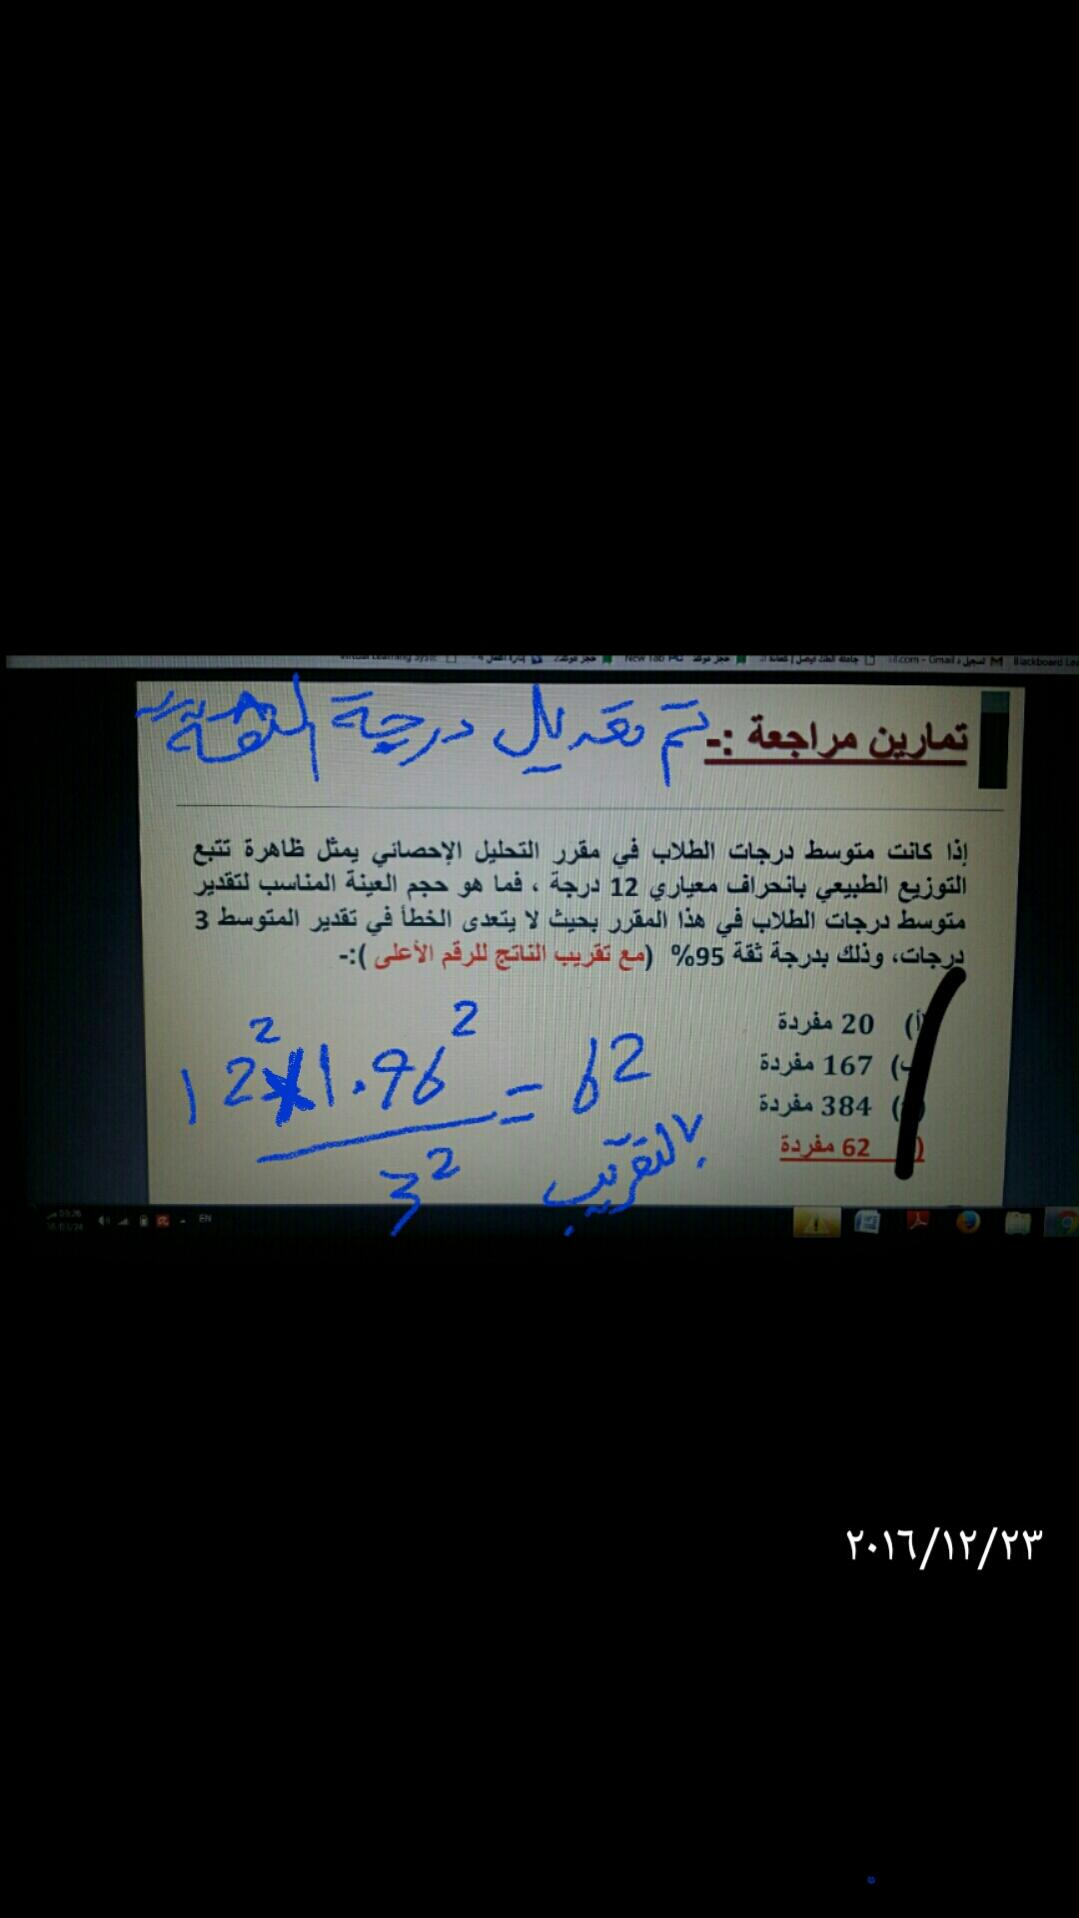 New Tab
Gmail
تم تعديل درجة الثقة
تمارين مراجعة :-
إذا كانت متوسط درجات الطلاب في مقرر التحليل الإحصائي يمثل ظاهرة تتبع
التوزيع الطبيعي بانحراف معياري 12 درجة ، فما هو حجم العينة المناسب لتقدير
متوسط درجات الطلاب في هذا المقرر بحيث لا يتعدى الخطأ في تقدير المتوسط 3
درجات، وذلك بدرجة ثقة 95% (مع تقريب الناتج للرقم الأعلى ):-
أ) 20 مفردة
167 مفردة
384 مفردة
62 مفردة
12² × 1.96² = 62
3²
بالتقريب
EN
٢٠١٦/١٢/٢٣